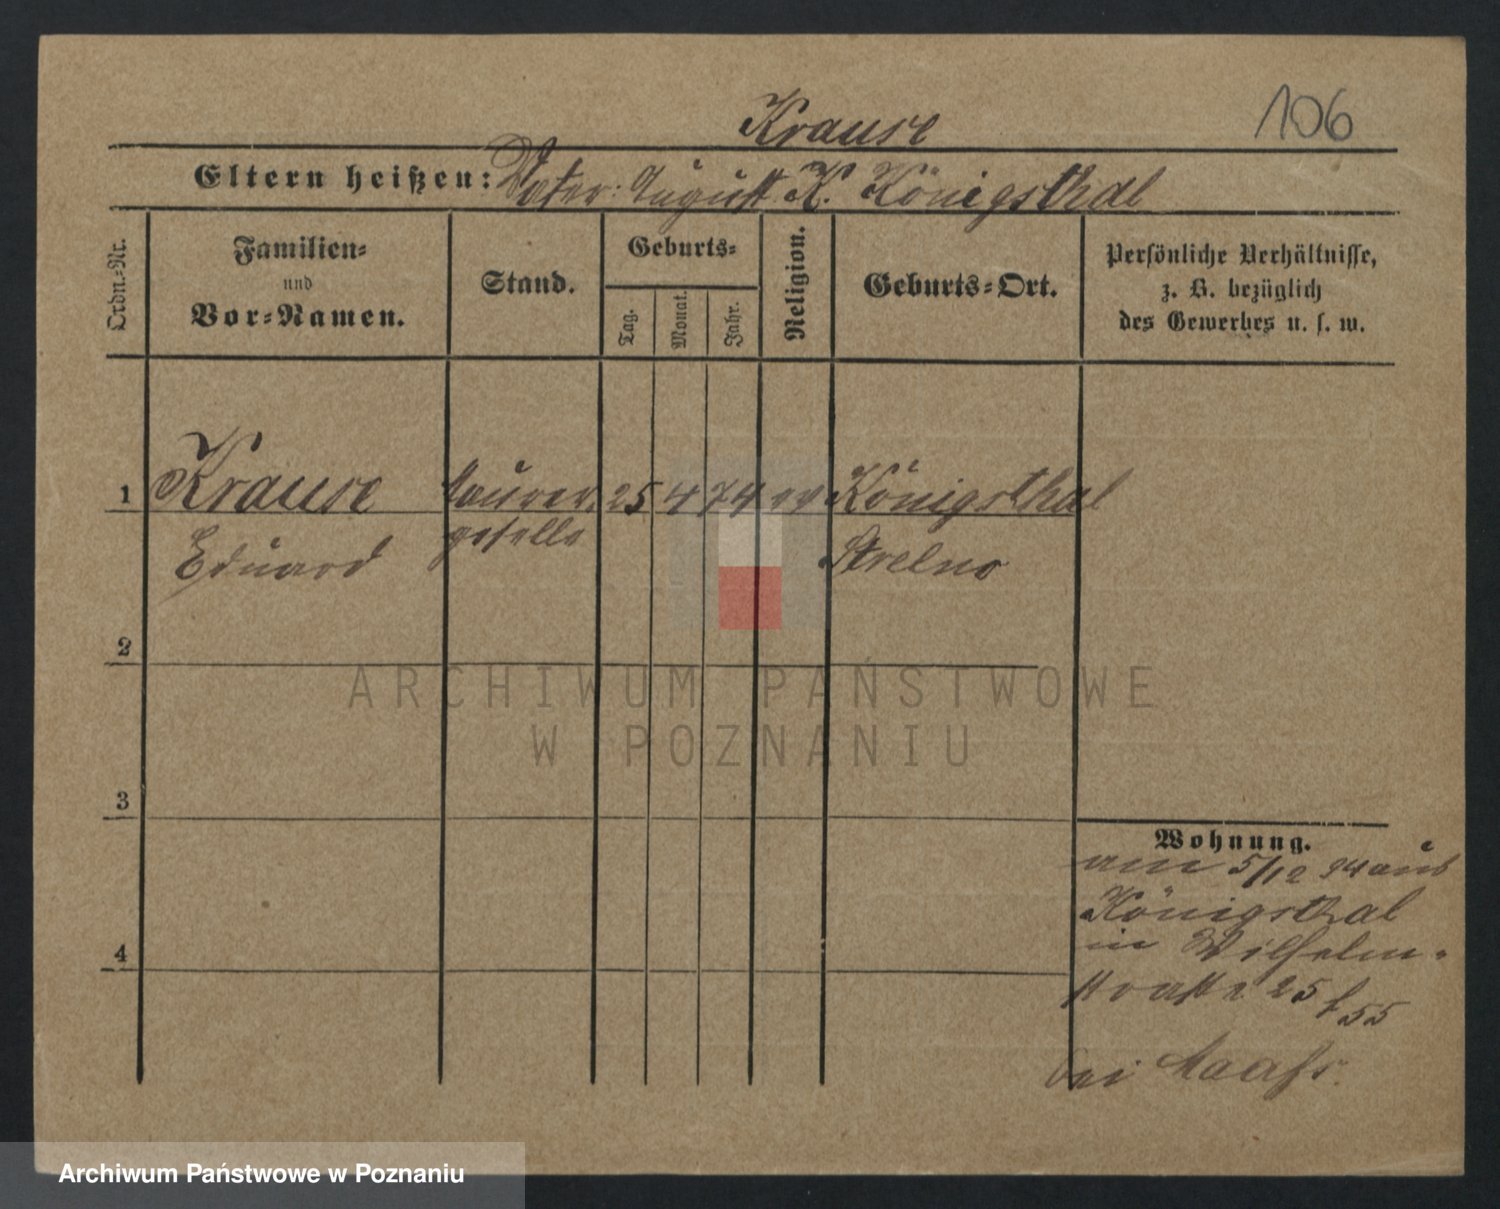 Krause
106
Eltern heißen: Vater: August K. Königsthal
Ordn.-Nr.
Familien-
und
Vor-Namen.
Stand.
Geburts-
Tag.
Monat.
Jahr.
Religion.
Geburts-Ort.
Persönliche Verhältnisse,
z. B. bezüglich
des Gewerbes u. s. w.
1 Krause 25 4 74 ev Königsthal
Eduard geselle Strelno
2
3
4
Wohnung.
am 5/12 94 aus
Königsthal
in Wilhelm-
straße 25
55
bei
ARCHIWUM PAŃSTWOWE
W POZNANIU
Archiwum Państwowe w Poznaniu